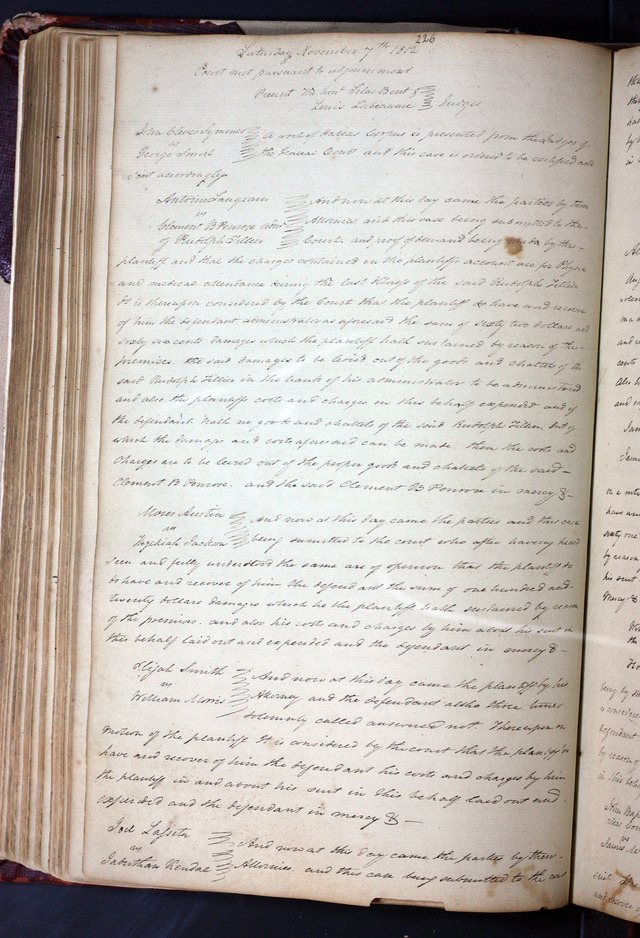 226
Saturday November 7th 1812
Court met pursuant to adjournment
Present The honl Silas Bent &
Louis Labeaume Judges
John Cleves Symmes
vs
George Smith
A writ of Habeas Corpus is presented from the Judges of
the General Court and this case is ordered to be certified and
sent accordingly
Antoine Saugrain
vs
Clement B Penrose admr
of Rudolph Tillier
And now at this day came the parties by their
Attornies and this case being submitted to the
Court. and proof of demand being made by the
plaintiff and that the charges contained in the plaintiffs account are for Physic
and medical attendance during the last illness of the said Rudolph Tillier
It is thereupon considered by the Court that the plaintiff do have and recover
of him the defendant administrator as aforesaid the sum of sixty two dollars and
sixty six cents damages which the plaintiff hath sustained by reason of the
premises. the said damages to be levied out of the goods and chattels of the
said Rudolph Tillier in the hands of his administrator to be administered
and also the plaintiffs costs and charges in this behalf expended and if
the defendant hath no goods and chattels of the said Rudolph Tillier. out of
which the damages and costs aforesaid can be made. then the costs and
Charges are to be levied out of the proper goods and chattels of the said
Clement B Penrose. and the said Clement B Penrose in mercy &
Moses Austin
vs
Hezekiah Jackson
And now at this day came the parties and this case
being submitted to the court who after having heard
seen and fully understood the same are of opinion that the plaintiff do
to have and recover of him the defendant the sum of one hundred and
twenty dollars damages which he the plaintiff hath sustained by reason
of the premises. and also his costs and charges by him about his suit in
this behalf laid out and expended and the defendant in mercy &
Elijah Smith
vs
William Morris
And now at this day came the plaintiff by his
Attorney and the defendant altho three times
solemnly called answered not. Thereupon on
motion of the plaintiff It is considered by the court that the plaintiff do
have and recover of him the defendant his costs and charges by him
the plaintiff in and about his suit in this behalf laid out and
expended and the defendant in mercy &
Joel
vs
And now at this day came the parties by their
Attornies and this case being submitted to the court